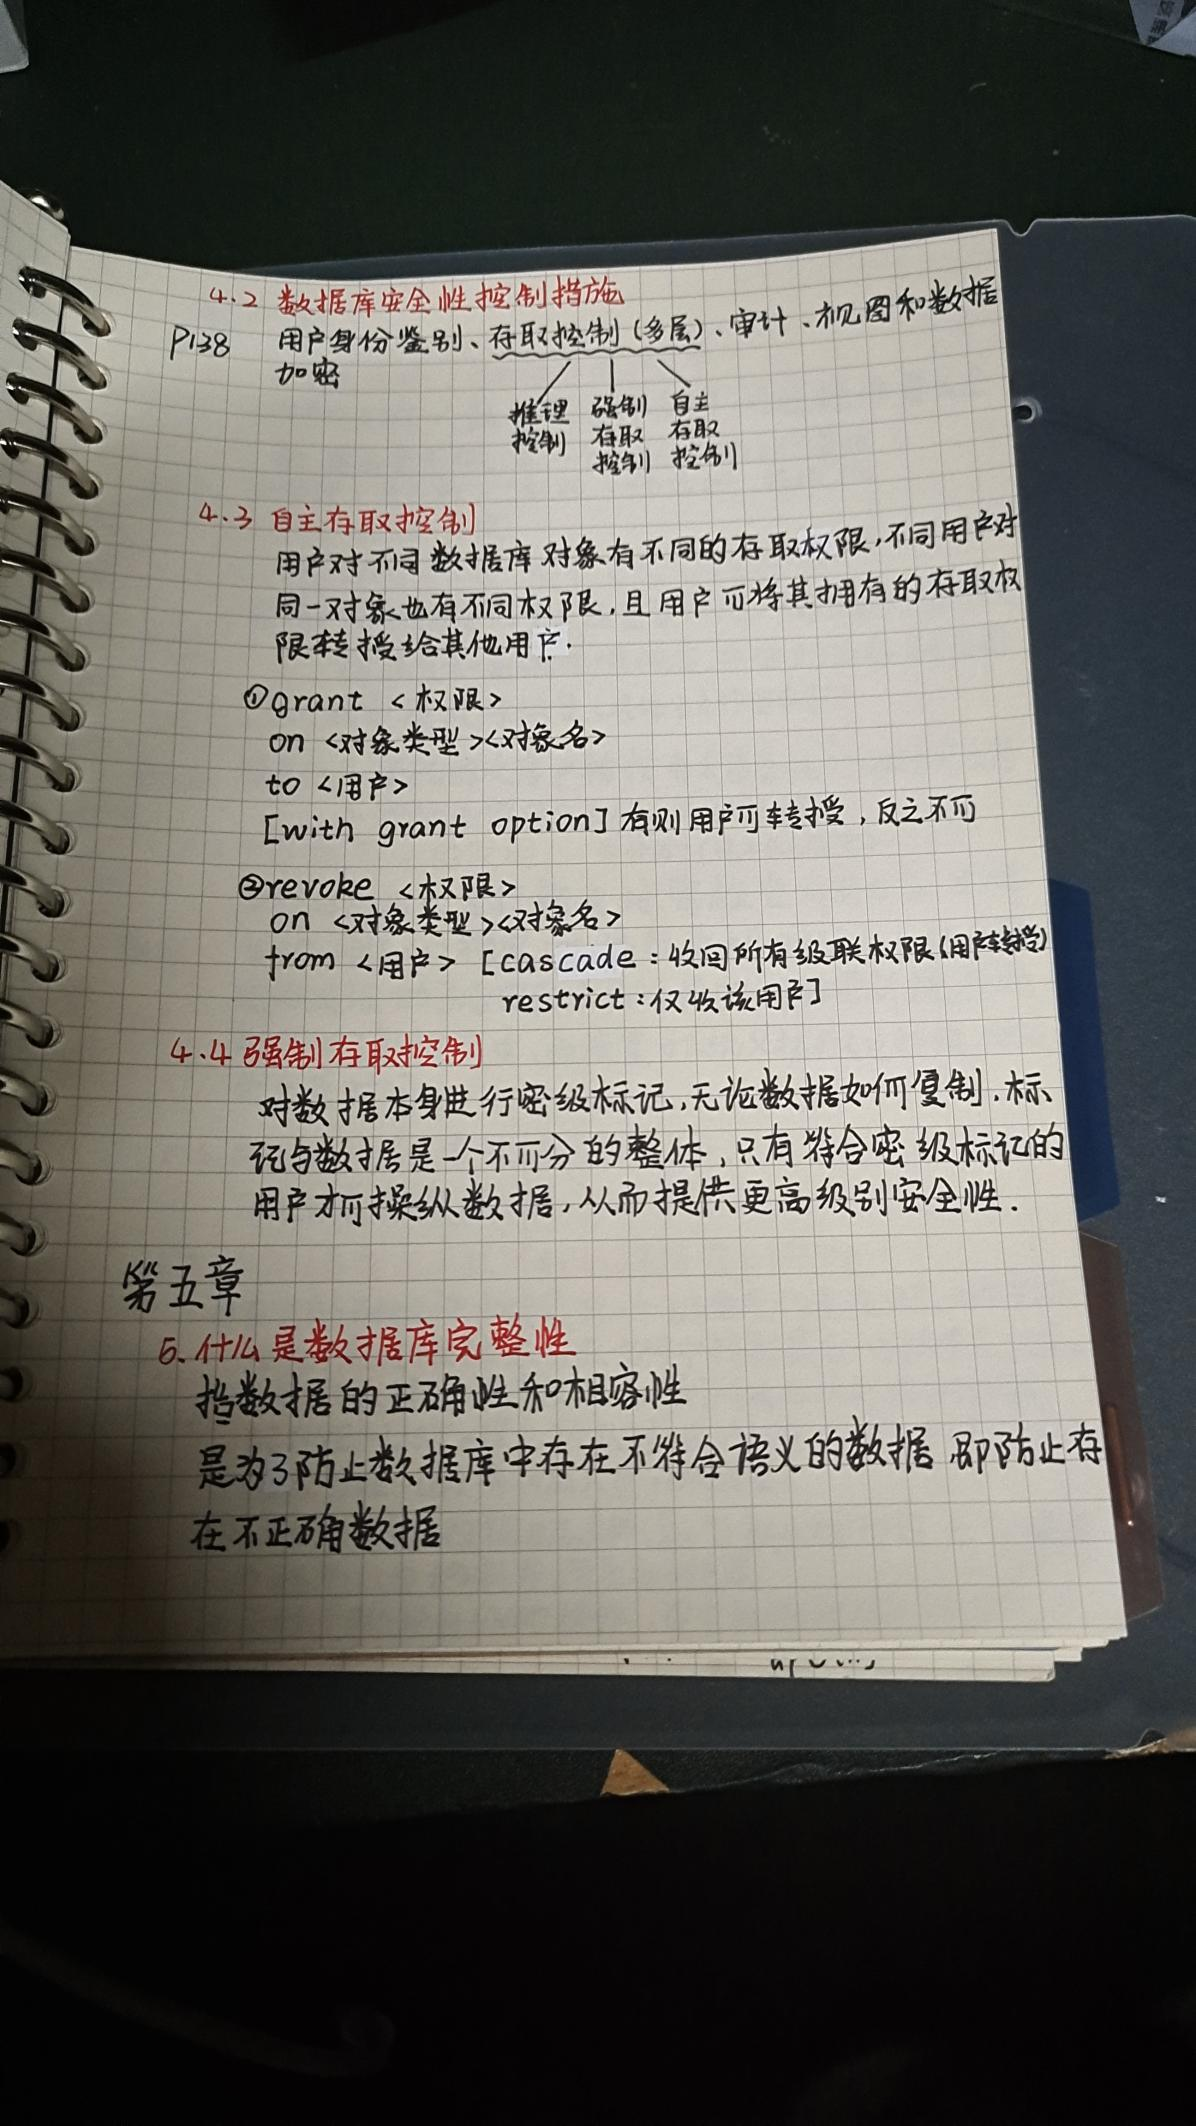 4.2 数据库安全性控制措施
P138 用户身份鉴别、存取控制(多层)、审计、视图和数据
加密
推理 强制 自主
控制 存取 存取
控制 控制
4.3 自主存取控制
用户对不同数据库对象有不同的存取权限,不同用户对
同一对象也有不同权限,且用户可将其拥有的存取权
限转授给其他用户.
①grant <权限>
on <对象类型><对象名>
to <用户>
[with grant option] 有则用户可转授,反之不可
②revoke <权限>
on <对象类型><对象名>
from <用户> [cascade:收回所有级联权限(用户转授)
restrict:仅收该用户]
4.4 强制存取控制
对数据本身进行密级标记,无论数据如何复制,标
记与数据是一个不可分的整体,只有符合密级标记的
用户才可操纵数据,从而提供更高级别安全性.
第五章
5.什么是数据库完整性
指数据的正确性和相容性
是为了防止数据库中存在不符合语义的数据,即防止存
在不正确数据